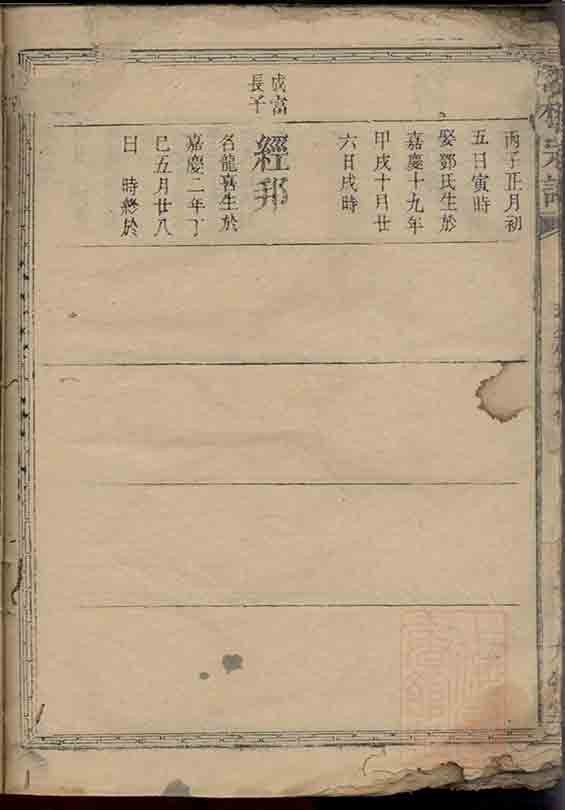 丙子正月初
五日寅時
娶鄧氏生於
嘉慶十九年
甲戌十月廿
六日戌時
成富
長子
經邦
名龍喜生於
嘉慶二年丁
巳五月廿八
日　時終於